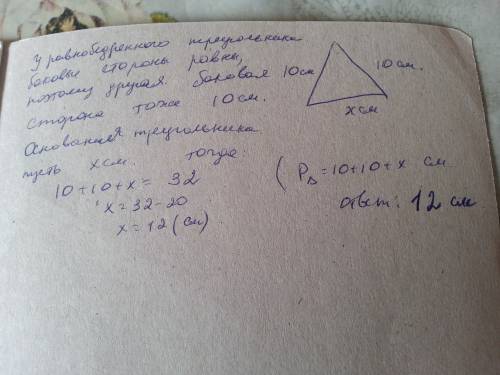 У равнобедренного треугольника
боковые стороны равны,
поэтому другая боковая
сторона тоже 10 см.
10 см
10 см.
x см
Основание треугольника
пусть x см. тогда:
10 + 10 + x = 32
x = 32 - 20
x = 12 (см)
( P△ = 10 + 10 + x см
ответ: 12 см